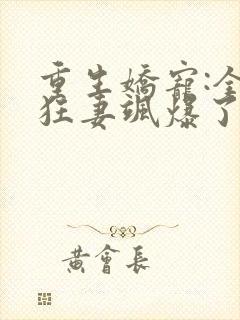 重生嬌寵:淦
狂妻颯爆了
黃會長